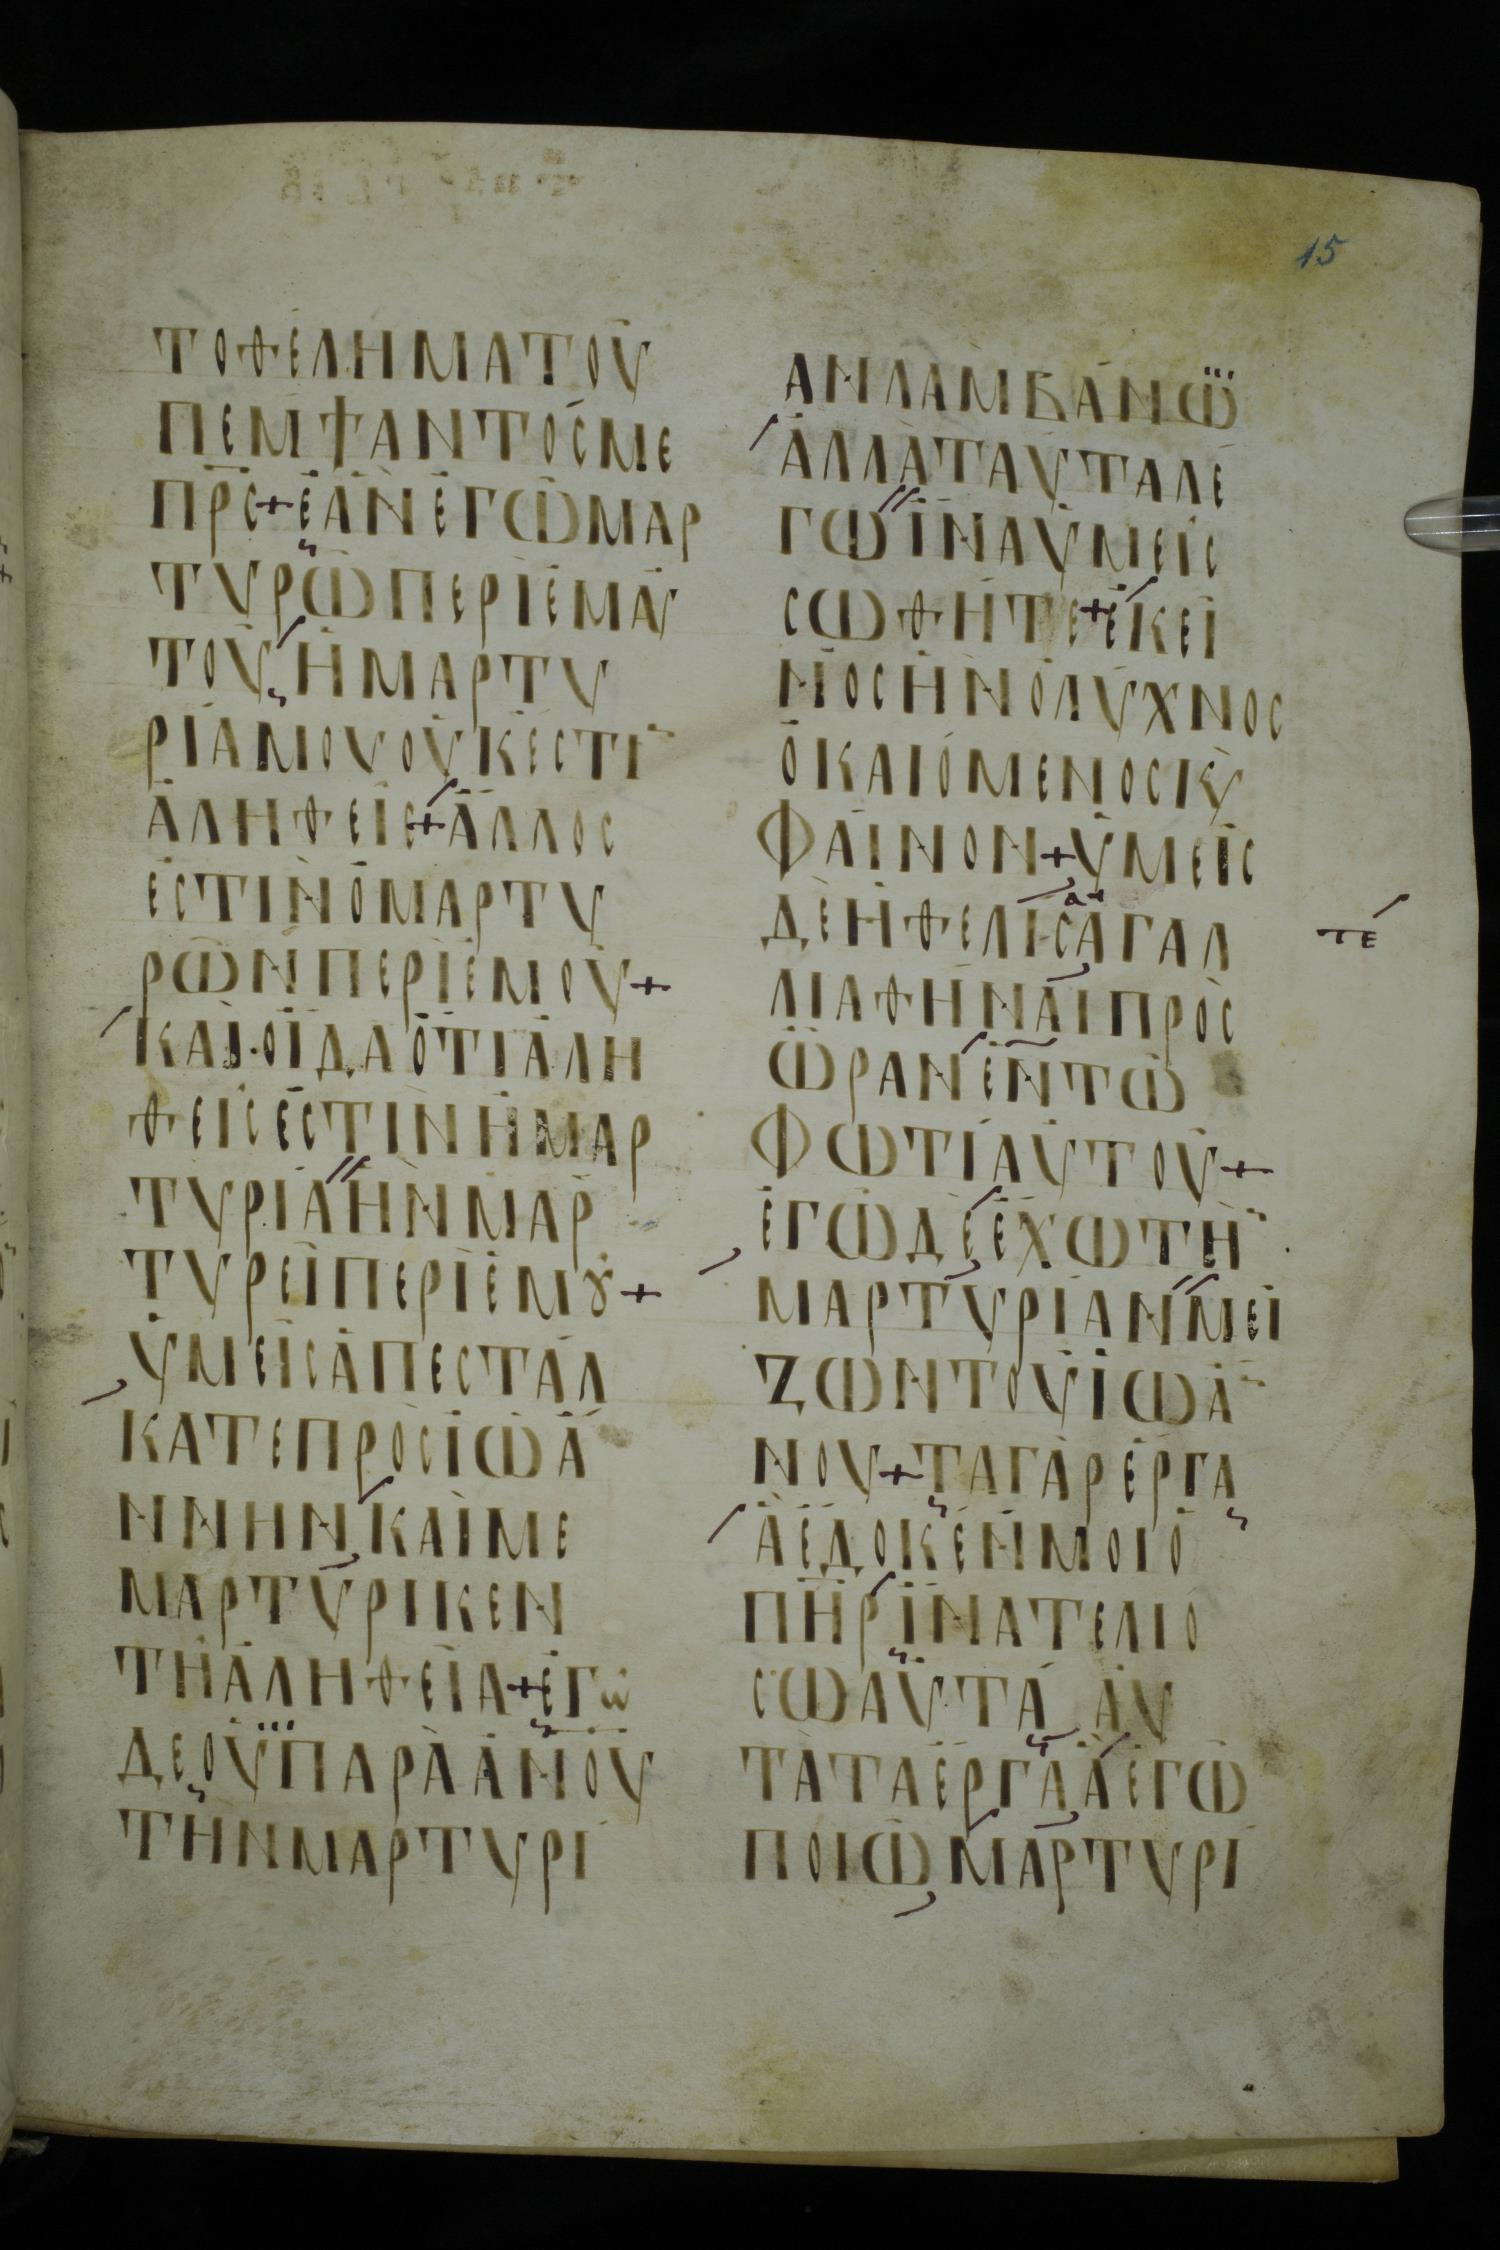 15
ΤΟΘΕΛΗΜΑΤΟΥ
ΠΕΜΨΑΝΤΟСΜΕ
ΠΡС+ΕΑΝΕΓΩΜΑΡ
ΤΥΡΩΠΕΡΙΕΜΑΥ
ΤΟΥΗΜΑΡΤΥ
ΡΙΑΜΟΥΟΥΚΕСΤΙ
ΑΛΗΘΕΙС+ΑΛΛΟС
ΕСΤΙΝΟΜΑΡΤΥ
ΡΩΝΠΕΡΙΕΜΟΥ+
ΚΑΙΟΙΔΑΟΤΙΑΛΗ
ΘΕΙСΕСΤΙΝΗΜΑΡ
ΤΥΡΙΑΗΝΜΑΡ
ΤΥΡΕΙΠΕΡΙΕΜȢ+
ΥΜΕΙСΑΠΕСΤΑΛ
ΚΑΤΕΠΡΟСΙΩΑ
ΝΝΗΝΚΑΙΜΕ
ΜΑΡΤΥΡΙΚΕΝ
ΤΗΑΛΗΘΕΙΑ+ΕΓΩ
ΔΕΟΥΠΑΡΑΑΝΟΥ
ΤΗΝΜΑΡΤΥΡΙ
ΑΝΛΑΜΒΑΝΩ
ΑΛΛΑΤΑΥΤΑΛΕ
ΓΩΪΝΑΥΜΕΙС
СΩΘΗΤΕ+ΕΚΕΙ
ΝΟСΗΝΟΛΥΧΝΟС
ΟΚΑΙΟΜΕΝΟСΚ̀
ΦΑΙΝΟΝ+ΥΜΕΙС
ΔΕΗΘΕΛΙСΑΓΑΛ
ατ
τέ
ΛΙΑΘΗΝΑΙΠΡΟС
ΩΡΑΝΕΝΤΩ
ΦΩΤΙΑΥΤΟΥ+
ΕΓΩΔΕΕΧΩΤΗ
ΜΑΡΤΥΡΙΑΝΜΕΙ
ΖΩΝΤΟΥΙΩΑ
ΝΟΥ+ΤΑΓΑΡΕΡΓΑ
ΑΕΔΟΚΕΝΜΟΙΟ
ΠΗΡΪΝΑΤΕΛΙΟ
СΩΑΥΤΑ ΑΥ
ΤΑΤΑΕΡΓΑΑΕΓΩ
ΠΟΙΩΜΑΡΤΥΡΙ